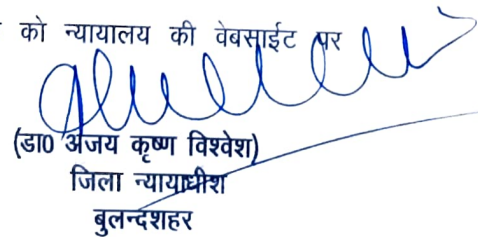 को न्यायालय की वेबसाईट पर
(डा0 अजय कृष्ण विश्वेश)
जिला न्यायाधीश
बुलन्दशहर